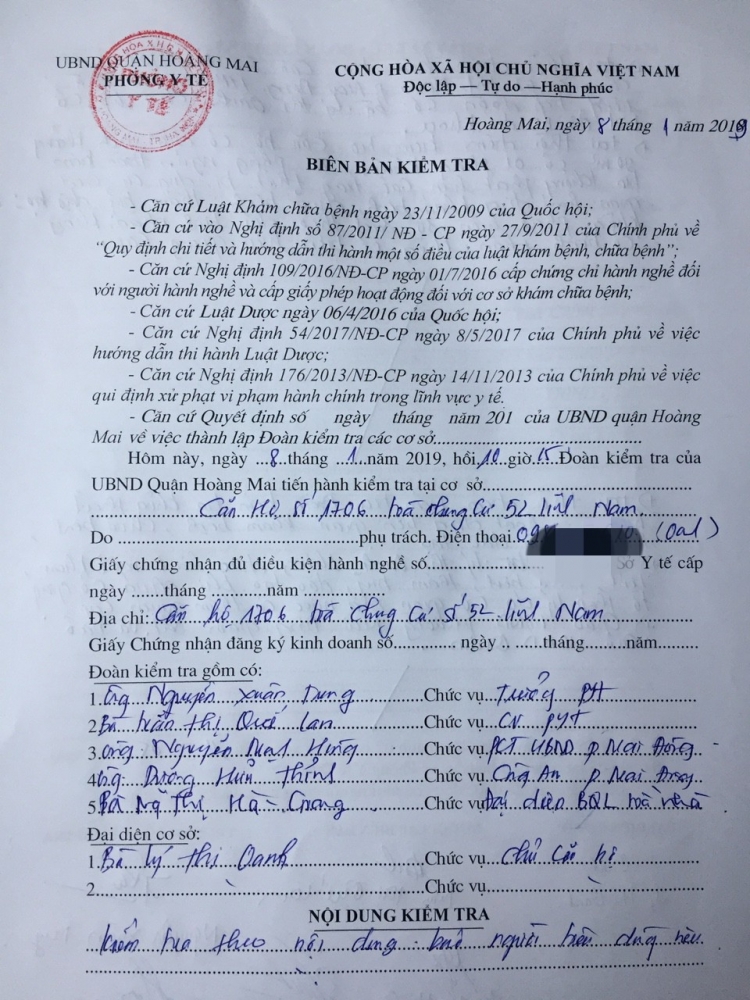 UBND QUẬN HOÀNG MAI
PHÒNG Y TẾ
CỘNG HÒA XÃ HỘI CHỦ NGHĨA VIỆT NAM
Độc lập — Tự do — Hạnh phúc
Hoàng Mai, ngày 8 tháng 1 năm 2019
BIÊN BẢN KIỂM TRA
- Căn cứ Luật Khám chữa bệnh ngày 23/11/2009 của Quốc hội;
- Căn cứ vào Nghị định số 87/2011/ NĐ - CP ngày 27/9/2011 của Chính phủ về
“Quy định chi tiết và hướng dẫn thi hành một số điều của luật khám bệnh, chữa bệnh”;
- Căn cứ Nghị định 109/2016/NĐ-CP ngày 01/7/2016 cấp chứng chỉ hành nghề đối
với người hành nghề và cấp giấy phép hoạt động đối với cơ sở khám chữa bệnh;
- Căn cứ Luật Dược ngày 06/4/2016 của Quốc hội;
- Căn cứ Nghị định 54/2017/NĐ-CP ngày 8/5/2017 của Chính phủ về việc
hướng dẫn thi hành Luật Dược;
- Căn cứ Nghị định 176/2013/NĐ-CP ngày 14/11/2013 của Chính phủ về việc
qui định xử phạt vi phạm hành chính trong lĩnh vực y tế.
- Căn cứ Quyết định số ngày tháng năm 201 của UBND quận Hoàng
Mai về việc thành lập Đoàn kiểm tra các cơ sở...................................
Hôm này, ngày ...8...tháng ...1...năm 2019, hồi.10.giờ.15.Đoàn kiểm tra của
UBND Quận Hoàng Mai tiến hành kiểm tra tại cơ sở...................................
Căn Hộ số 1706 toà chung cư 52 Lĩnh Nam
Do ...................................phụ trách. Điện thoại.
Giấy chứng nhận đủ điều kiện hành nghề số................... Sở Y tế cấp
ngày .......tháng ............năm ..................
Địa chỉ: Căn hộ 1706 toà chung cư số 52 Lĩnh Nam
Giấy Chứng nhận đăng ký kinh doanh số.............. ngày .. ......tháng.........năm.........
Đoàn kiểm tra gồm có:
1. Ông Nguyễn Xuân Dung Chức vụ Trưởng PYT
2. Bà Trần Thị Quế Lan Chức vụ CV PYT
3. Ông Nguyễn Mạnh Hùng Chức vụ PCT UBND p. Mai Động
4. Ông Dương Thịnh Chức vụ Công An p. Mai Động
5. Bà Thị Hà Giang Chức vụ Đại diện BQL toà nhà
Đại diện cơ sở:
1. Bà Lý Thị Oanh Chức vụ Chủ căn hộ
2.......................................Chức vụ...........................
NỘI DUNG KIỂM TRA
kiểm tra theo nội dung người tiêu dùng nêu